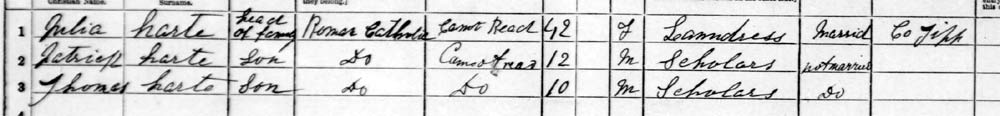 Christian Name. Surname. they belong.)
1 Julia harte head of family Roman Catholic Canot Read 42 F Lanndress Marrid Co Tipp
2 Patrick harte Son Do Canot read 12 M Scholars not married
3 Thomas harte Son Do Do 10 M Scholars Do